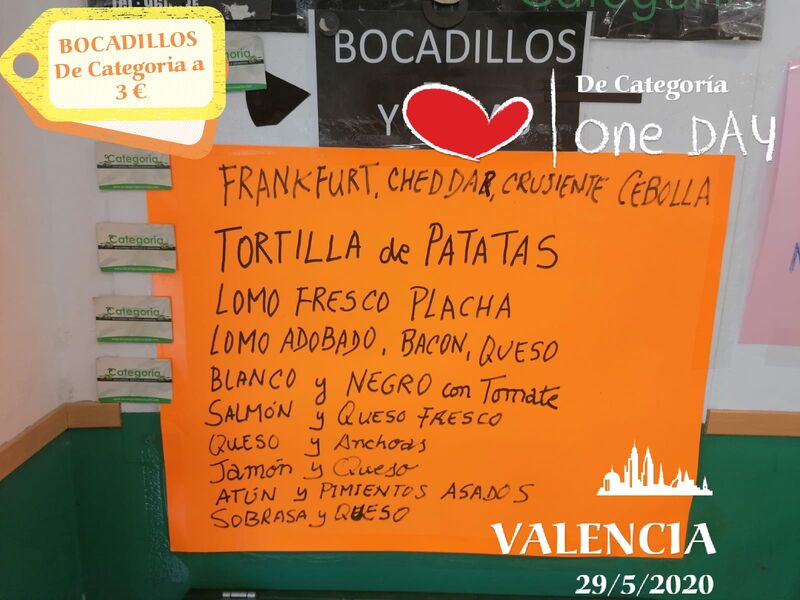 Categoría
BOCADILLOS
De Categoria a
3 €
BOCADILLOS
Y
De Categoría
One DAY
Categoría
Categoría
Categoría
Categoría
FRANKFURT, CHEDDAR, CRUJIENTE CEBOLLA
TORTILLA de PATATAS
LOMO FRESCO PLACHA
LOMO ADOBADO, BACON, QUESO
BLANCO y NEGRO con Tomate
SALMÓN y QUESO FRESCO
QUESO y Anchoas
Jamón y Queso
ATÚN y PIMIENTOS ASADOS
SOBRASA y QUESO
VALENCIA
29/5/2020